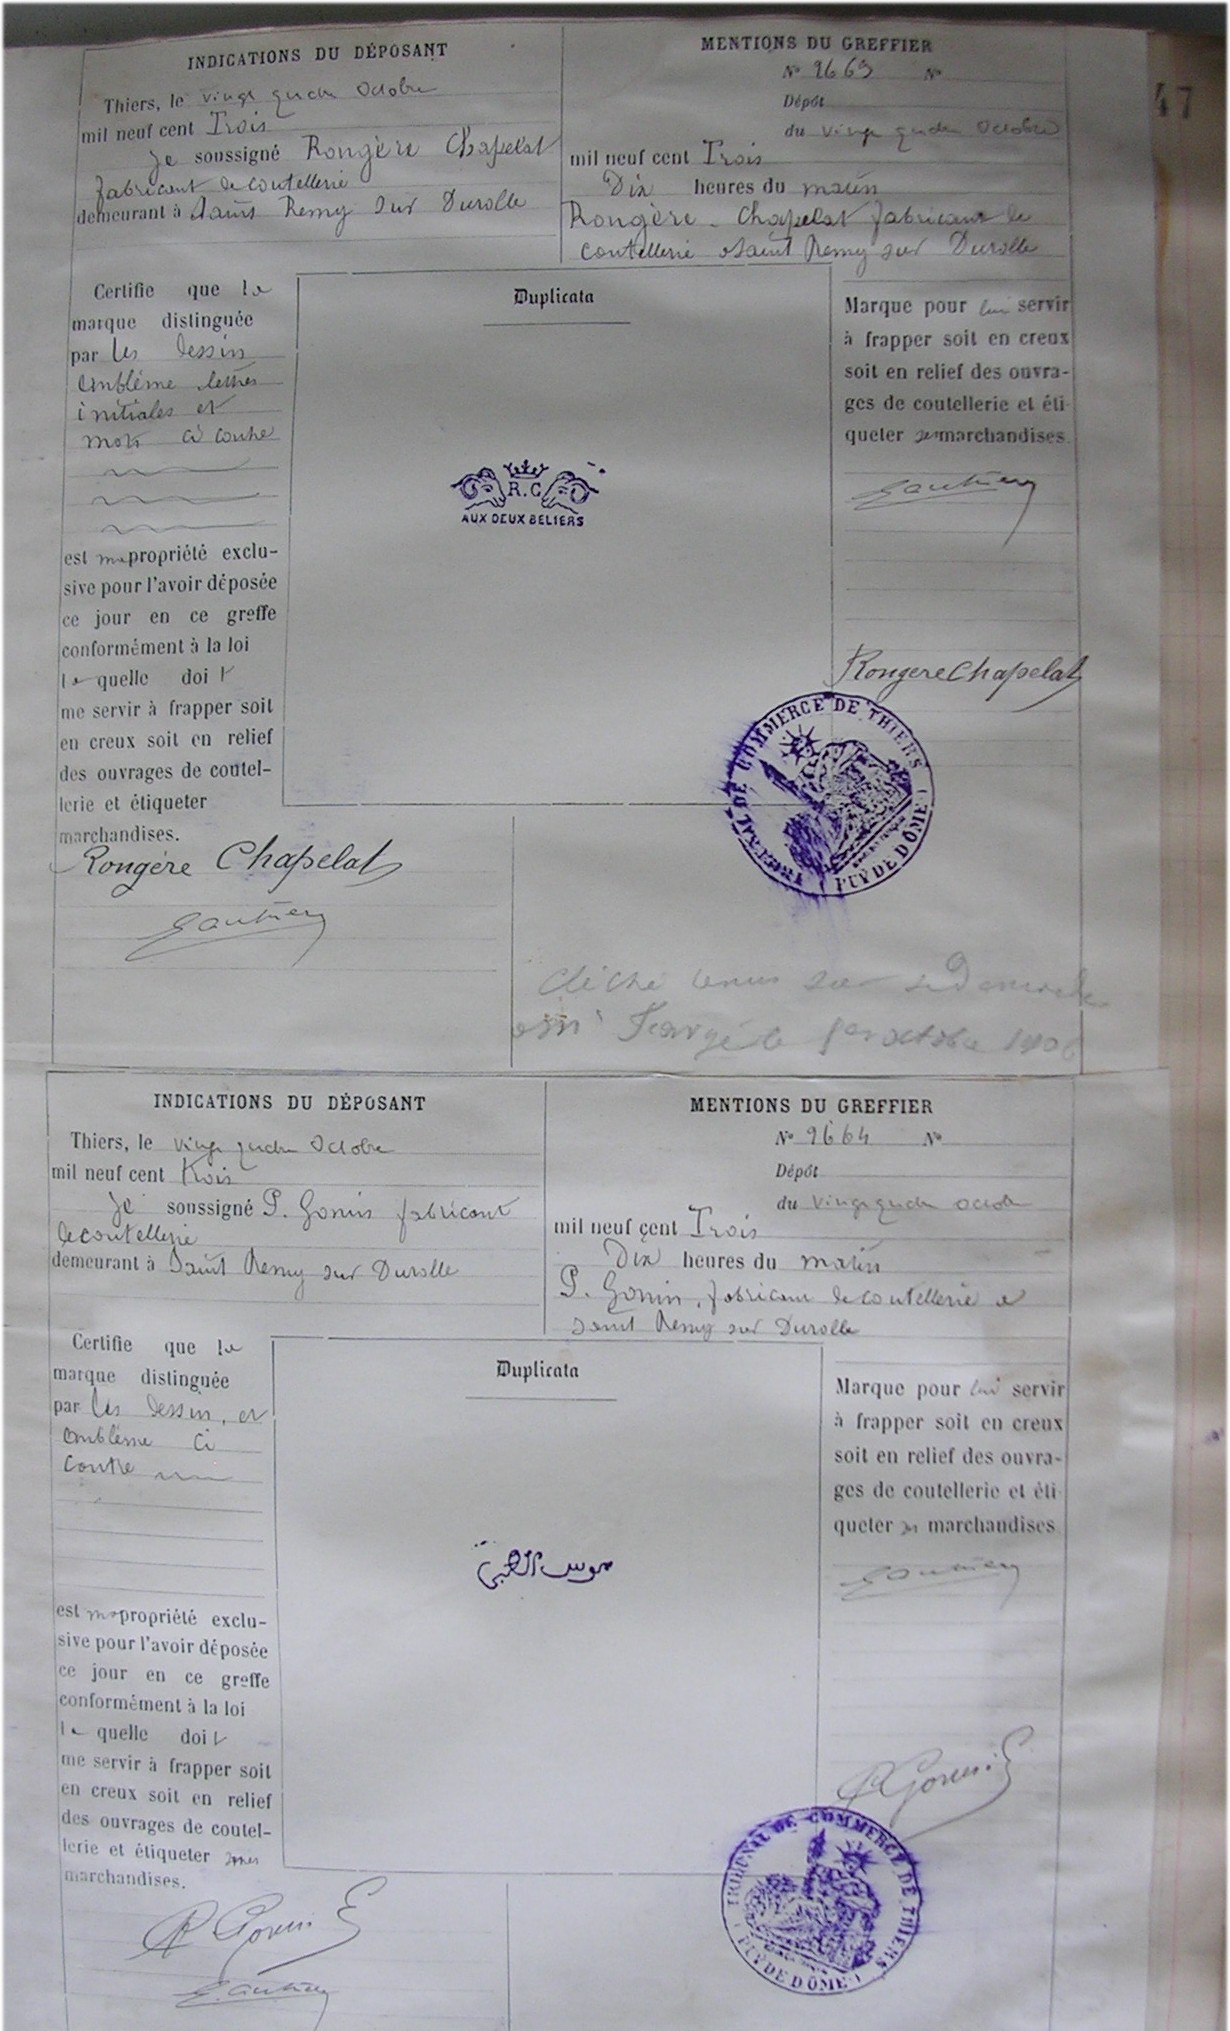 47
INDICATIONS DU DÉPOSANT
Thiers, le vingt quatre Octobre
mil neuf cent Trois
Je soussigné Rongère Chapelat
fabricant de coutellerie
demeurant à Saint Remy sur Durolle
MENTIONS DU GREFFIER
N° 2663 N°
Dépôt
du vingt quatre Octobre
mil neuf cent Trois
Dix heures du matin
Rongère - Chapelat fabricant de
coutellerie à Saint Remy sur Durolle
Certifie que la
marque distinguée
par les dessin
emblème lettres
initiales et
mots ci contre
est ma propriété exclu-
sive pour l'avoir déposée
ce jour en ce greffe
conformément à la loi
la quelle doit
me servir à frapper soit
en creux soit en relief
des ouvrages de coutel-
lerie et étiqueter
marchandises.
Rongère Chapelat
Gauthier
Duplicata
R. C
AUX DEUX BELIERS
Marque pour lui servir
à frapper soit en creux
soit en relief des ouvra-
ges de coutellerie et éti-
queter ses marchandises.
Gauthier
Rongere Chapelat
TRIBUNAL DE COMMERCE DE THIERS
PUY DE DÔME
Cliché sur
octobre 1906
INDICATIONS DU DÉPOSANT
Thiers, le vingt quatre Octobre
mil neuf cent trois
Je soussigné P. Gonin fabricant
de coutellerie
demeurant à Saint Remy sur Durolle
MENTIONS DU GREFFIER
N° 2664 N°
Dépôt
du vingt quatre octobre
mil neuf cent Trois
Dix heures du matin
P. Gonin, fabricant de coutellerie à
Saint Remy sur Durolle
Certifie que la
marque distinguée
par les dessin, et
emblème ci
contre
est ma propriété exclu-
sive pour l'avoir déposée
ce jour en ce greffe
conformément à la loi
la quelle doit
me servir à frapper soit
en creux soit en relief
des ouvrages de coutel-
lerie et étiqueter mes
marchandises.
P. Gonin
Gauthier
Duplicata
Marque pour lui servir
à frapper soit en creux
soit en relief des ouvra-
ges de coutellerie et éti-
queter ses marchandises
Gauthier
P. Gonin
TRIBUNAL DE COMMERCE DE THIERS
PUY DE DÔME